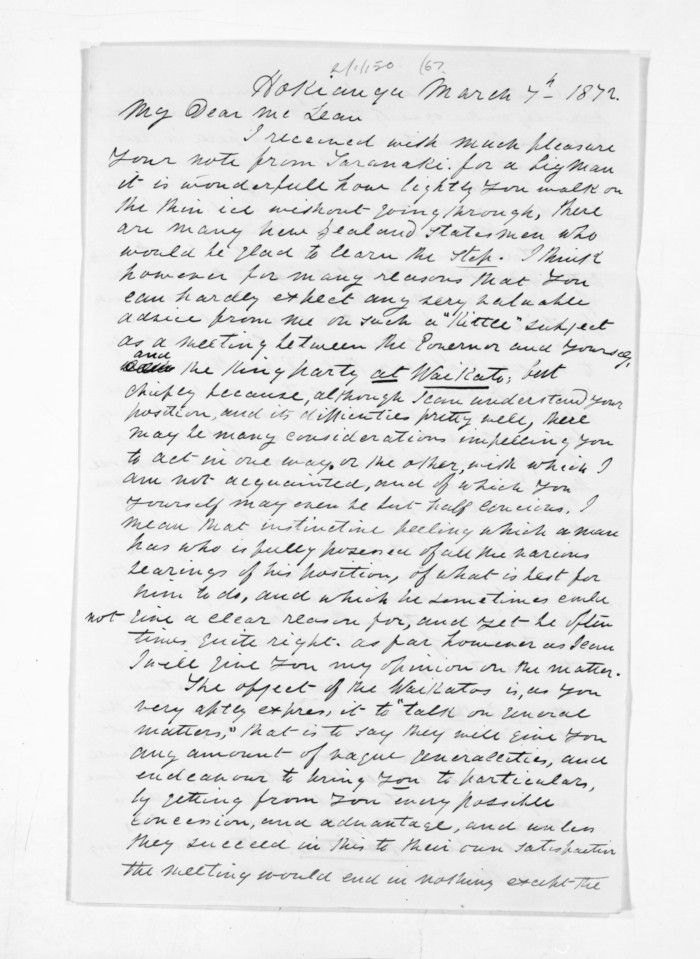 2/1/150 (67
Hokianga March 7th 1872.
My Dear Mc Lean
I received with much pleasure
Your note from Taranaki. for a big man
it is wonderfull how lightly You walk on
the thin ice without going through, there
are many new Zealand Statesmen who
would be glad to learn the step. I think
however for many reasons that You
can hardly expect any very valuable
advice from me on such a "Kittle" subject
as a meeting between the Governor and Yourself,
and the King party at Waikato; but
chiefly because, although I can understand Your
position, and its difficulties pretty well, there
may be many considerations impelling You
to act in one way, or the other, with which I
am not acquainted, and of which You
Yourself may even be but half concious. I
mean that instinctive feeling which a man
has who is fully posessed of all the various
bearings of his position, of what is best for
him to do, and which he sometimes could
not give a clear reason for, and yet be often
times quite right. as far however as I can
I will give You my opinion on the matter.
The object of the Waikatos is, as You
very aptly expres, it to "talk on general
matters," that is to say they will give You
any amount of vague generalities, and
endeavour to bring You to particulars,
by getting from You every possible
concession, and advantage, and unless
they succeed in this to their own satisfaction
the meeting would end in nothing except the